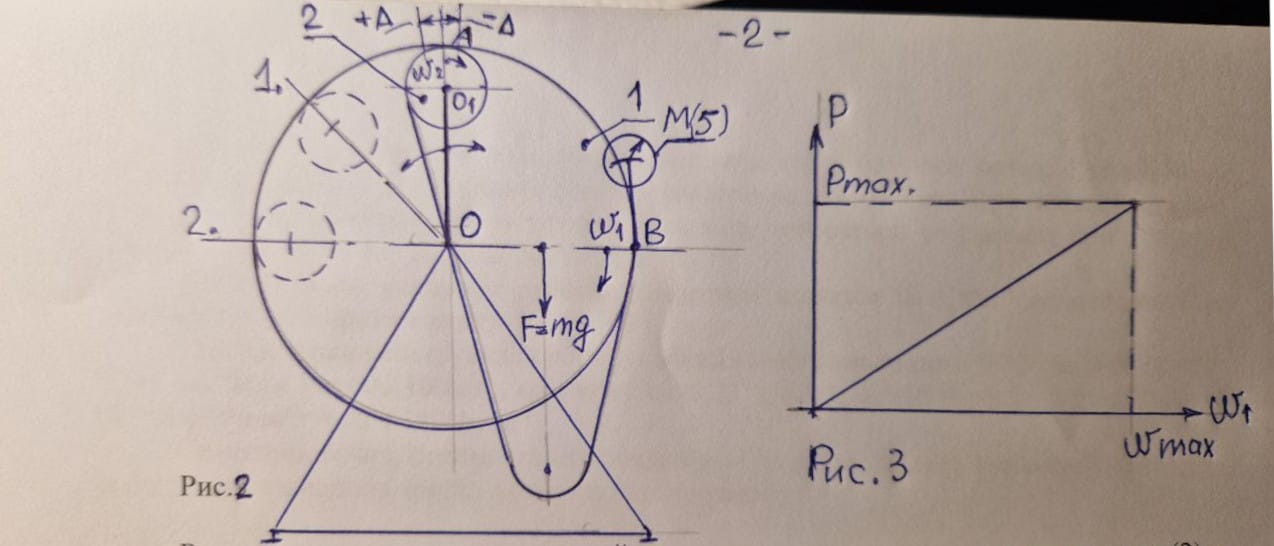 -2-
2
+Δ
-Δ
A
1.
W₂
O₁
1
M(5)
2.
O
W₁
B
F=mg
Рис.2
P
Pmax.
W₁
Wmax
Рис.3